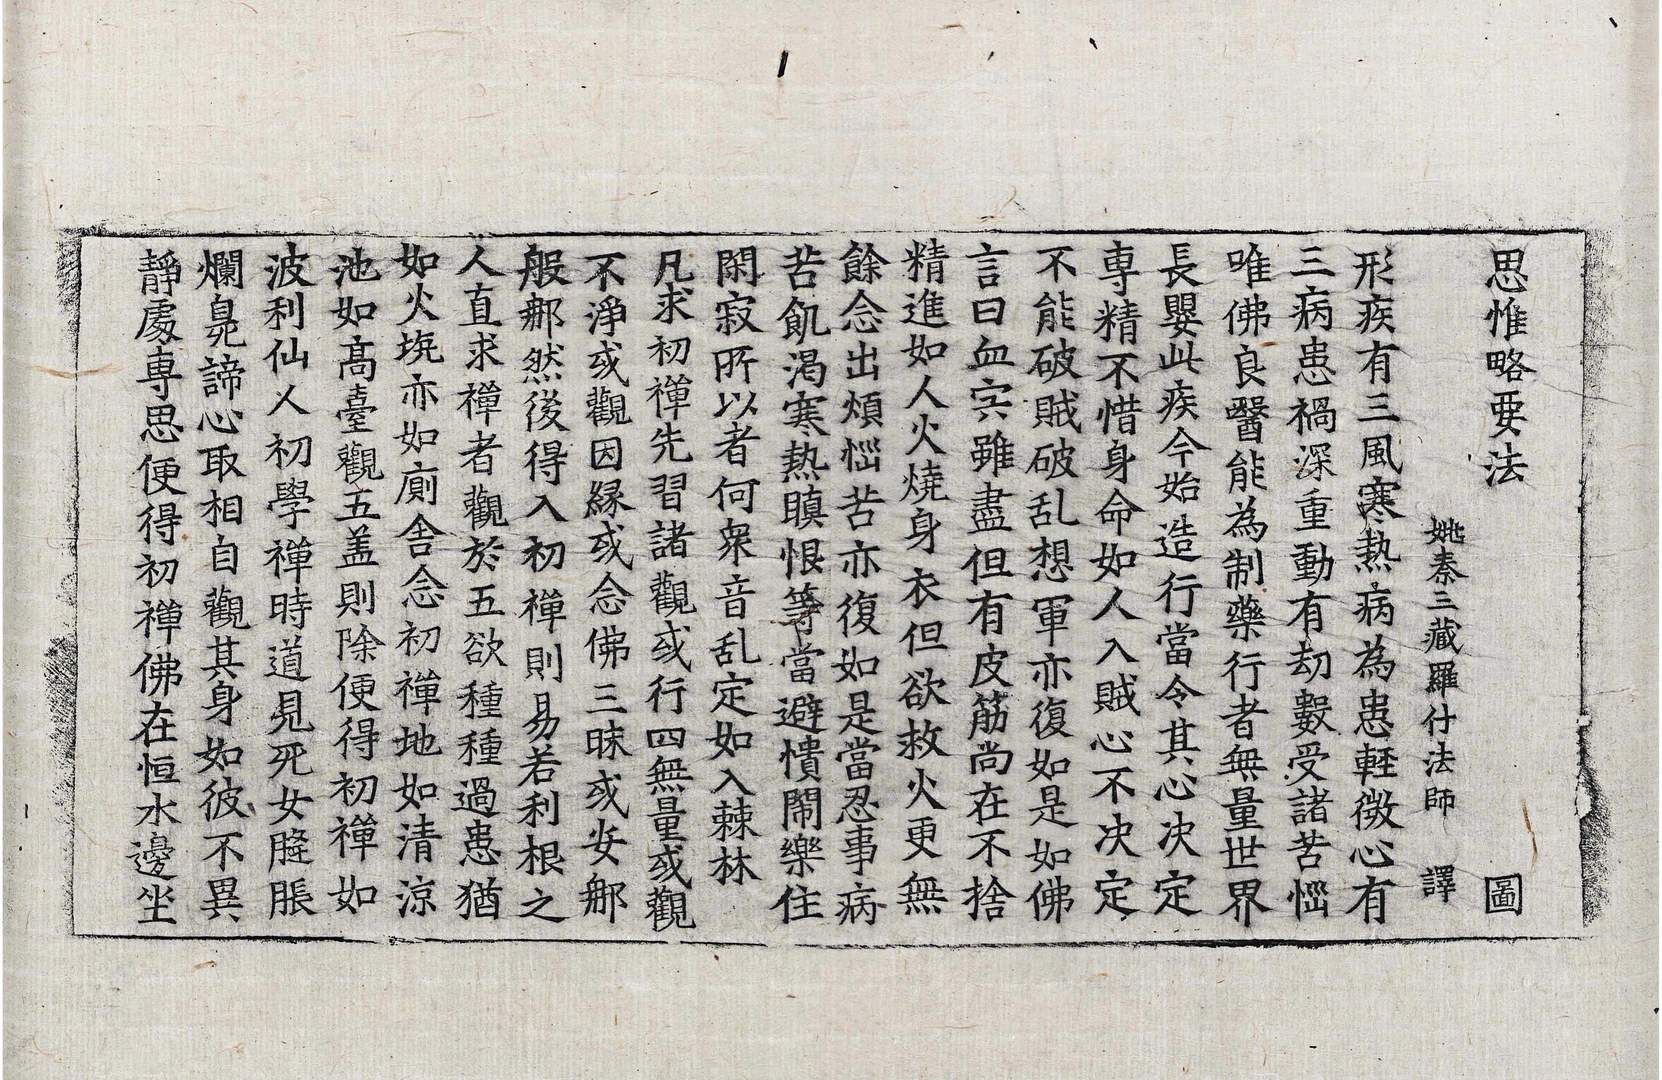 思惟略要法 圖
姚秦三藏羅什法師 譯
形疾有三風寒熱病為患輕微心有
三病患禍深重動有劫數受諸苦惱
唯佛良醫能為制藥行者無量世界
長嬰此疾今始造行當令其心决定
專精不惜身命如人入賊心不决定
不能破賊破乱想軍亦復如是如佛
言曰血宍雖盡但有皮筋尚在不捨
精進如人火燒身衣但欲救火更無
餘念出煩惱苦亦復如是當忍事病
苦飢渴寒熱瞋恨等當避憒鬧樂住
閑寂所以者何衆音乱定如入棘林
凡求初禪先習諸觀或行四無量或觀
不淨或觀因緣或念佛三昧或安那
般那然後得入初禪則易若利根之
人直求禪者觀於五欲種種過患猶
如火坑亦如廁舍念初禪地如清涼
池如高臺觀五盖則除便得初禪如
波利仙人初學禪時道見死女膖脹
爛臭諦心取相自觀其身如彼不異
靜處專思便得初禪佛在恒水邊坐